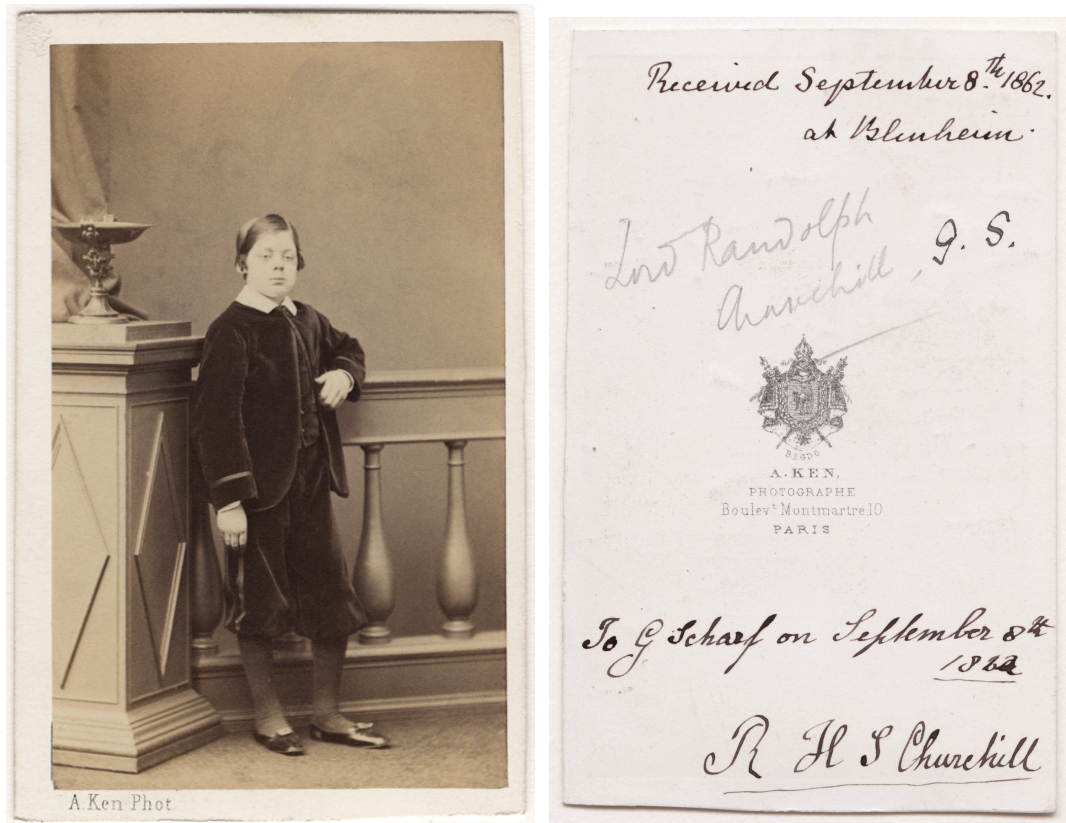 A. Ken Phot.
Received September 8.th 1862.
at Blenheim.
Lord Randolph
Churchill.
G. S.
BSGDG
A. KEN,
PHOTOGRAPHE
Boulevt Montmartre, 10,
PARIS
To G Scharf on September 8th
1862
R H S Churchill